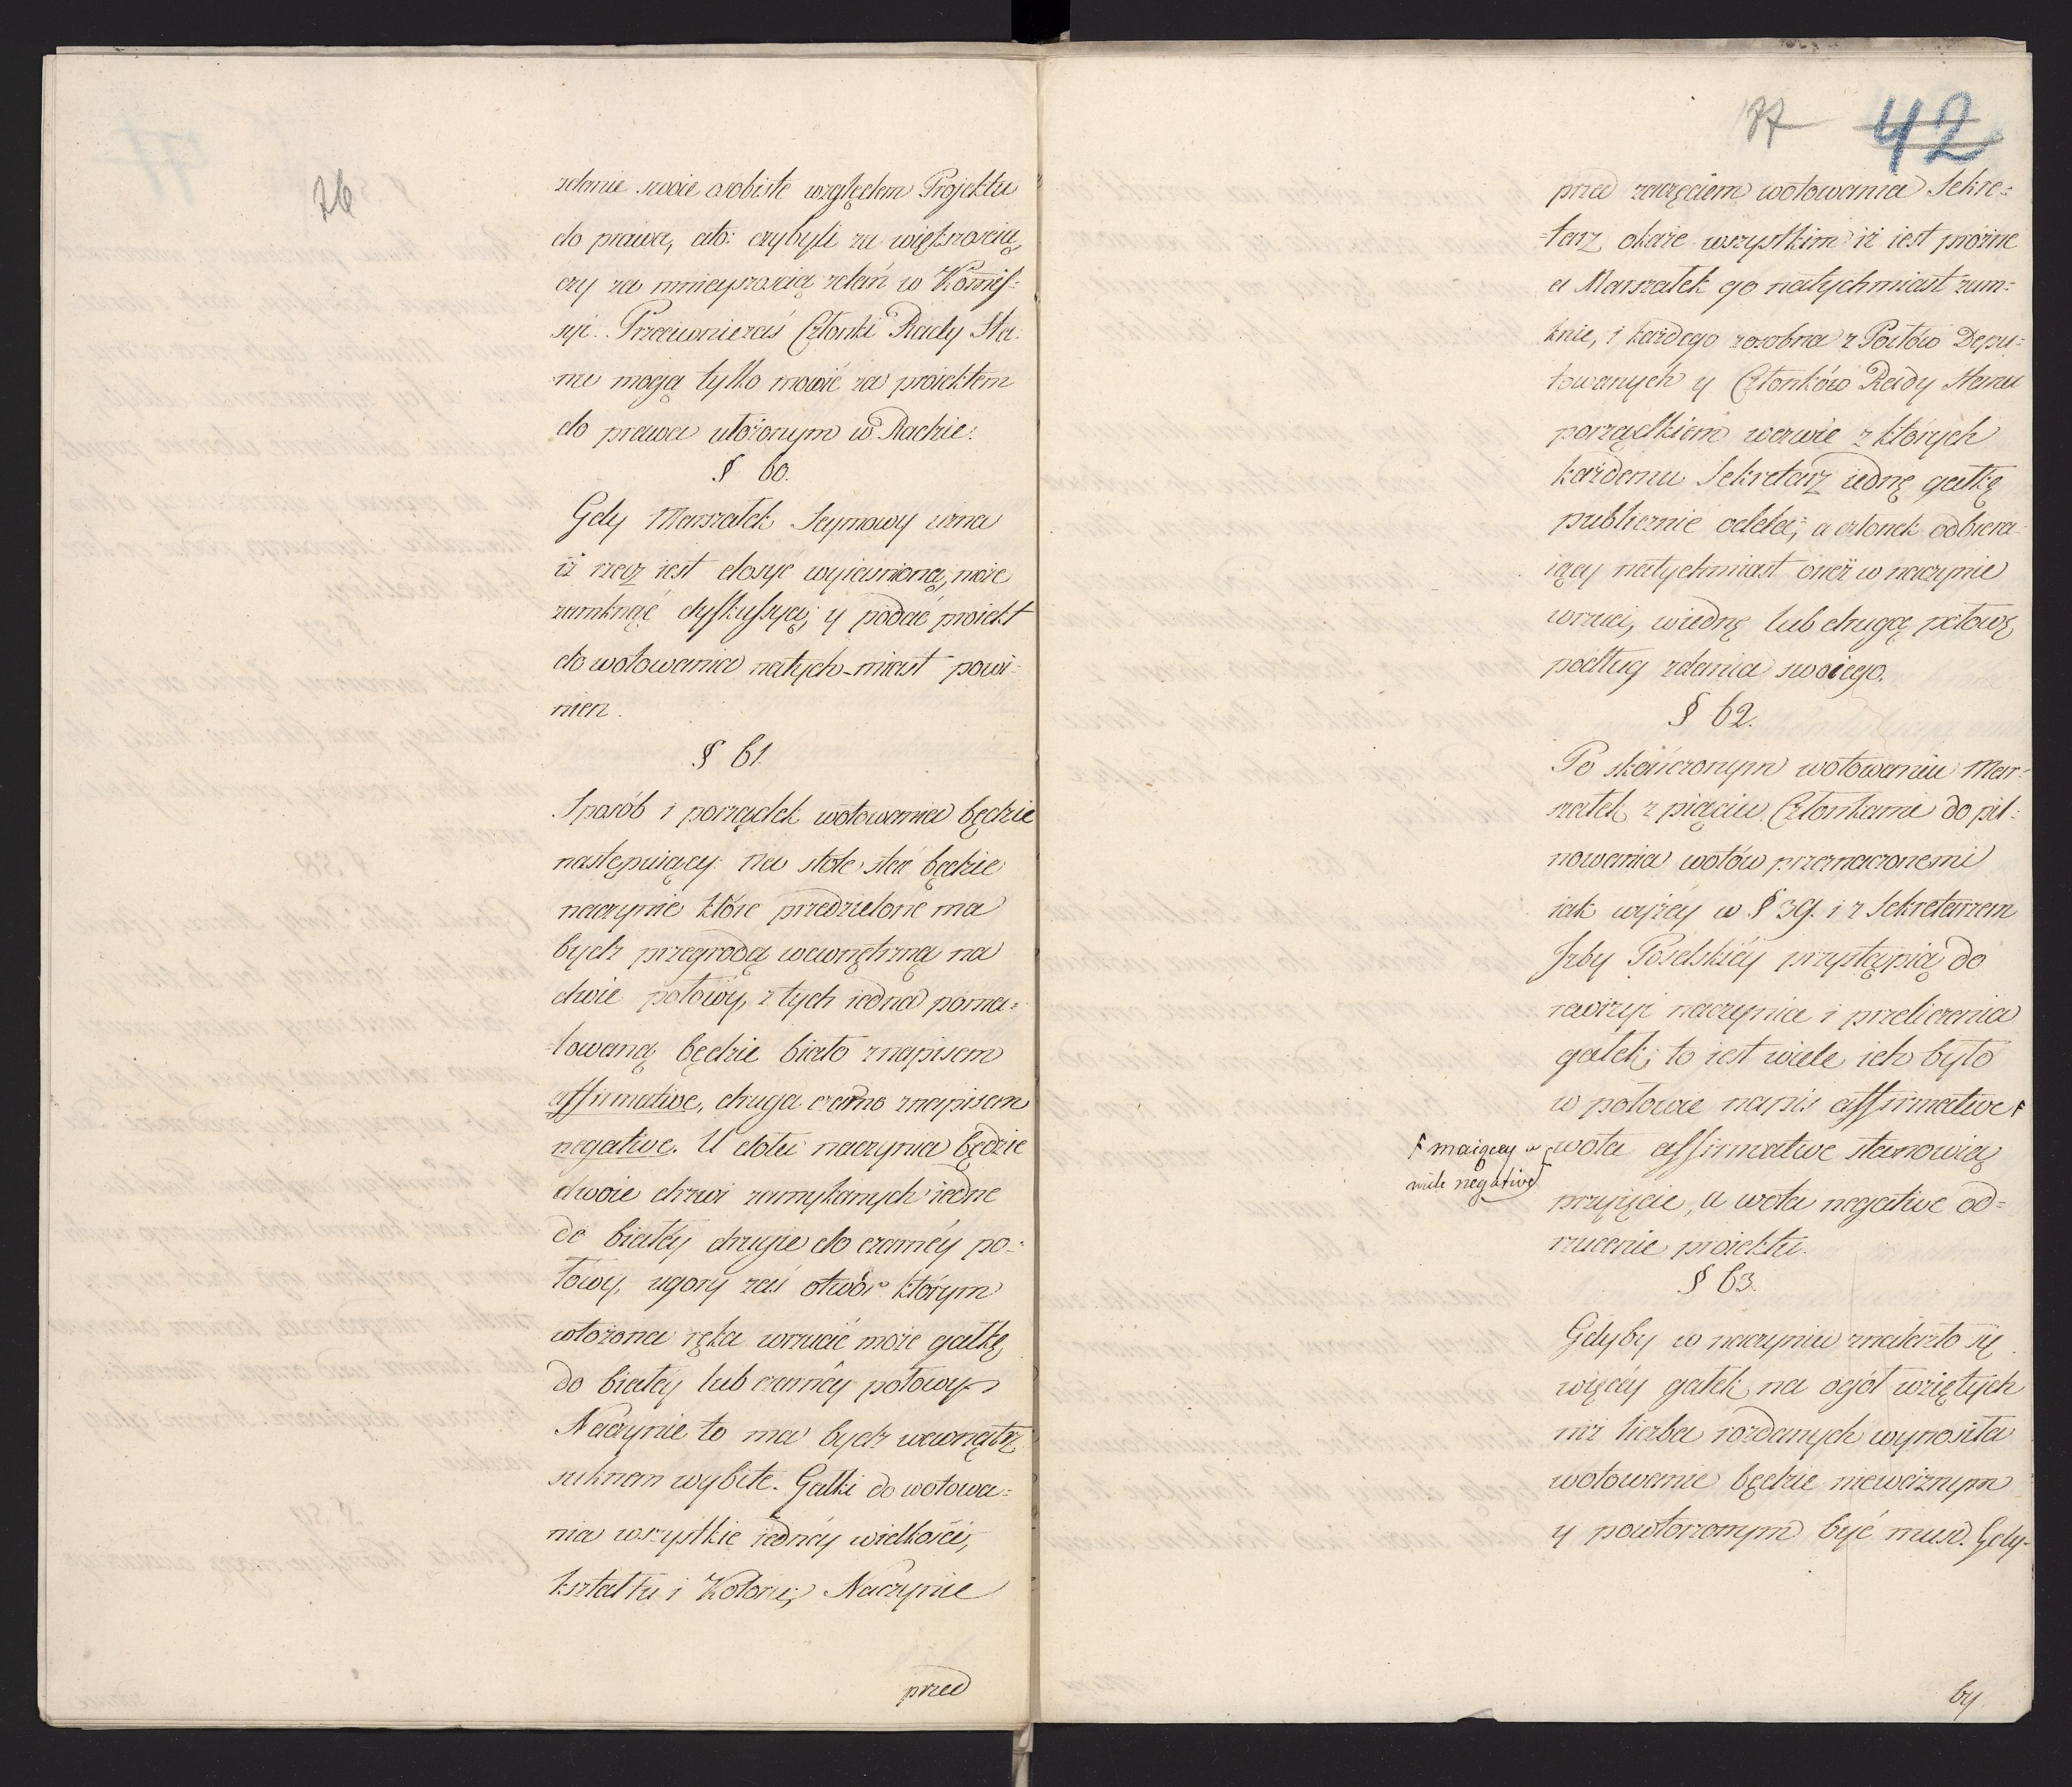 76
zdanie swoie osobiste względem Projektu
do prawa, ato: czybyli za większością,
czy za mnieyszością zdań w Kommis-
syi. Przeciwnie zaś Członki Rady Sta-
nu mogą tylko mowić za proiektem
do prawa ułożonym w Radzie.
§ 60.
Gdy Marszałek Seymowy uzna
iż rzecz iest dosyć wyiaśnioną, może
zamknąć dyskussyą, y podać proiekt
do wotowania natych-miast powi-
nien.
§ 61.
Sposób i porządek wotowania będzie
następuiący: na stole stać będzie
naczynie które przedzielone ma
bydź przegrodą wewnętrzną na
dwie połowy, z tych iedna poma-
lowaną będzie biało z napisem
affirmative, druga czarno z napisem
negative. U dołu naczynia będzie
dwoie drzwi zamykanych iedne
do białéy drugie do czarnéy po=
łowy, ugory zaś otwór którym
włożona ręka wrzucić może gałkę
do białéy lub czarnéy połowy.
Naczynie to ma bydź wewnątrz
suknem wybite. Gałki do wotowa=
nia wszystkie iednéy wielkości,
kształtu i Koloru; Naczynie
przed
77 42
przed zaczęciem wotowania Sekre=
=tarz okaże wszystkim iż iest próżne
a Marszałek go natychmiast zam=
knie, i każdego zosobna z Posłów Depu=
towanych y Członków Rady Stanu
porządkiem wezwie z których
każdemu Sekretarz iednę gałkę
publicznie odda, a członek odbiera-
iący natychmiast onęż w naczynie
wrzuci, wiednę lub drugą połowę
podług zdania swoiego.
§ 62.
Po skończonym wotowaniu Mar=
szałek z pięciu Członkami do pil=
nowania wotów przeznaczonemi
iak wyżéy w § 39. i z Sekretarzem
Jzby Poselskiéy przystąpią do
rewizyi naczynia i przeliczenia
gałek, to iest wiele ich było
w połowie napis affirmative F
F maiącey a
wiele negative
wota affirmative stanowią
przyięcie, a wota negative od=
rzucenie proiektu.
§ 63.
Gdyby w naczyniu znalazło się
więcéy gałek na ogół wziętych
niż liczba rozdanych wynosiła
wotowanie będzie nieważnym
y powtorzonym być musi. Gdy-
by